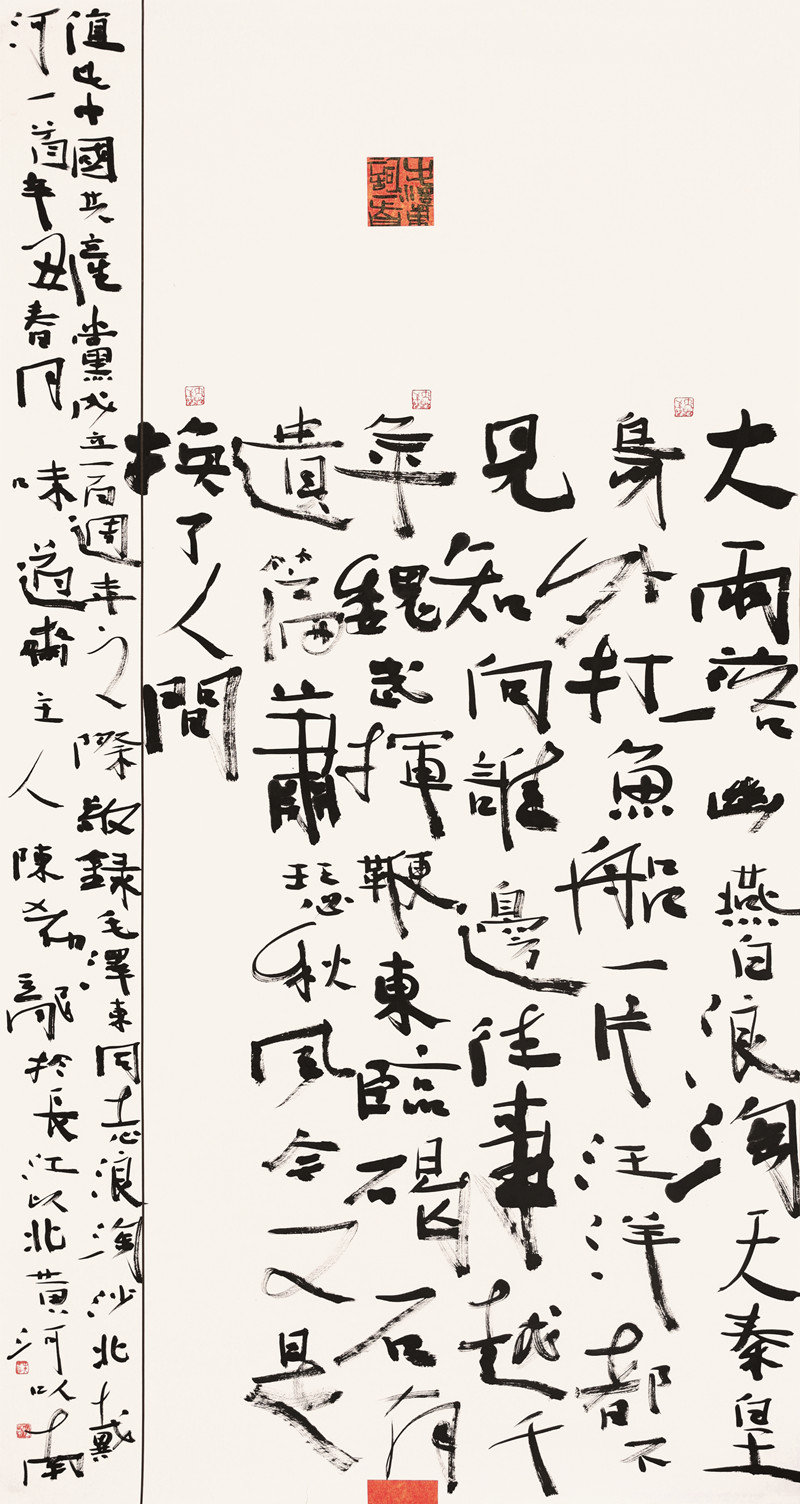 毛澤東
詞一首
大雨落幽燕白浪淘天秦皇
島外打魚船一片汪洋都不
見知向誰邊往事越千
年魏武揮鞭東臨碣石有
遺篇蕭瑟秋風今又是
換了人間
值此中國共產黨成立一百週年之際敬錄毛澤東同志浪淘沙北戴
河一首辛丑春月味道齋主人陳於長江以北黃河以南